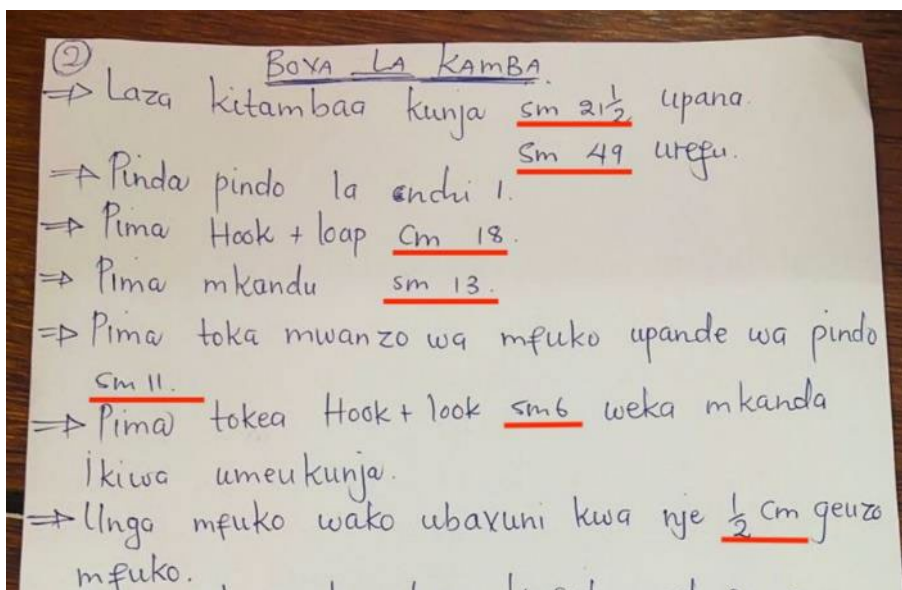 ②
BOYA LA KAMBA.
⇒ Laza kitambaa kunja sm 21½ upana.
sm 49 urefu.
⇒ Pinda pindo la enchi 1.
⇒ Pima Hook + loap Cm 18.
⇒ Pima mkandu sm 13.
⇒ Pima toka mwanzo wa mfuko upande wa pindo
sm 11.
⇒ Pima tokea Hook + look sm6 weka mkanda
ikiwa umeukunja.
⇒ Unga mfuko wako ubavuni kwa nje ½ cm geuzo
mfuko.